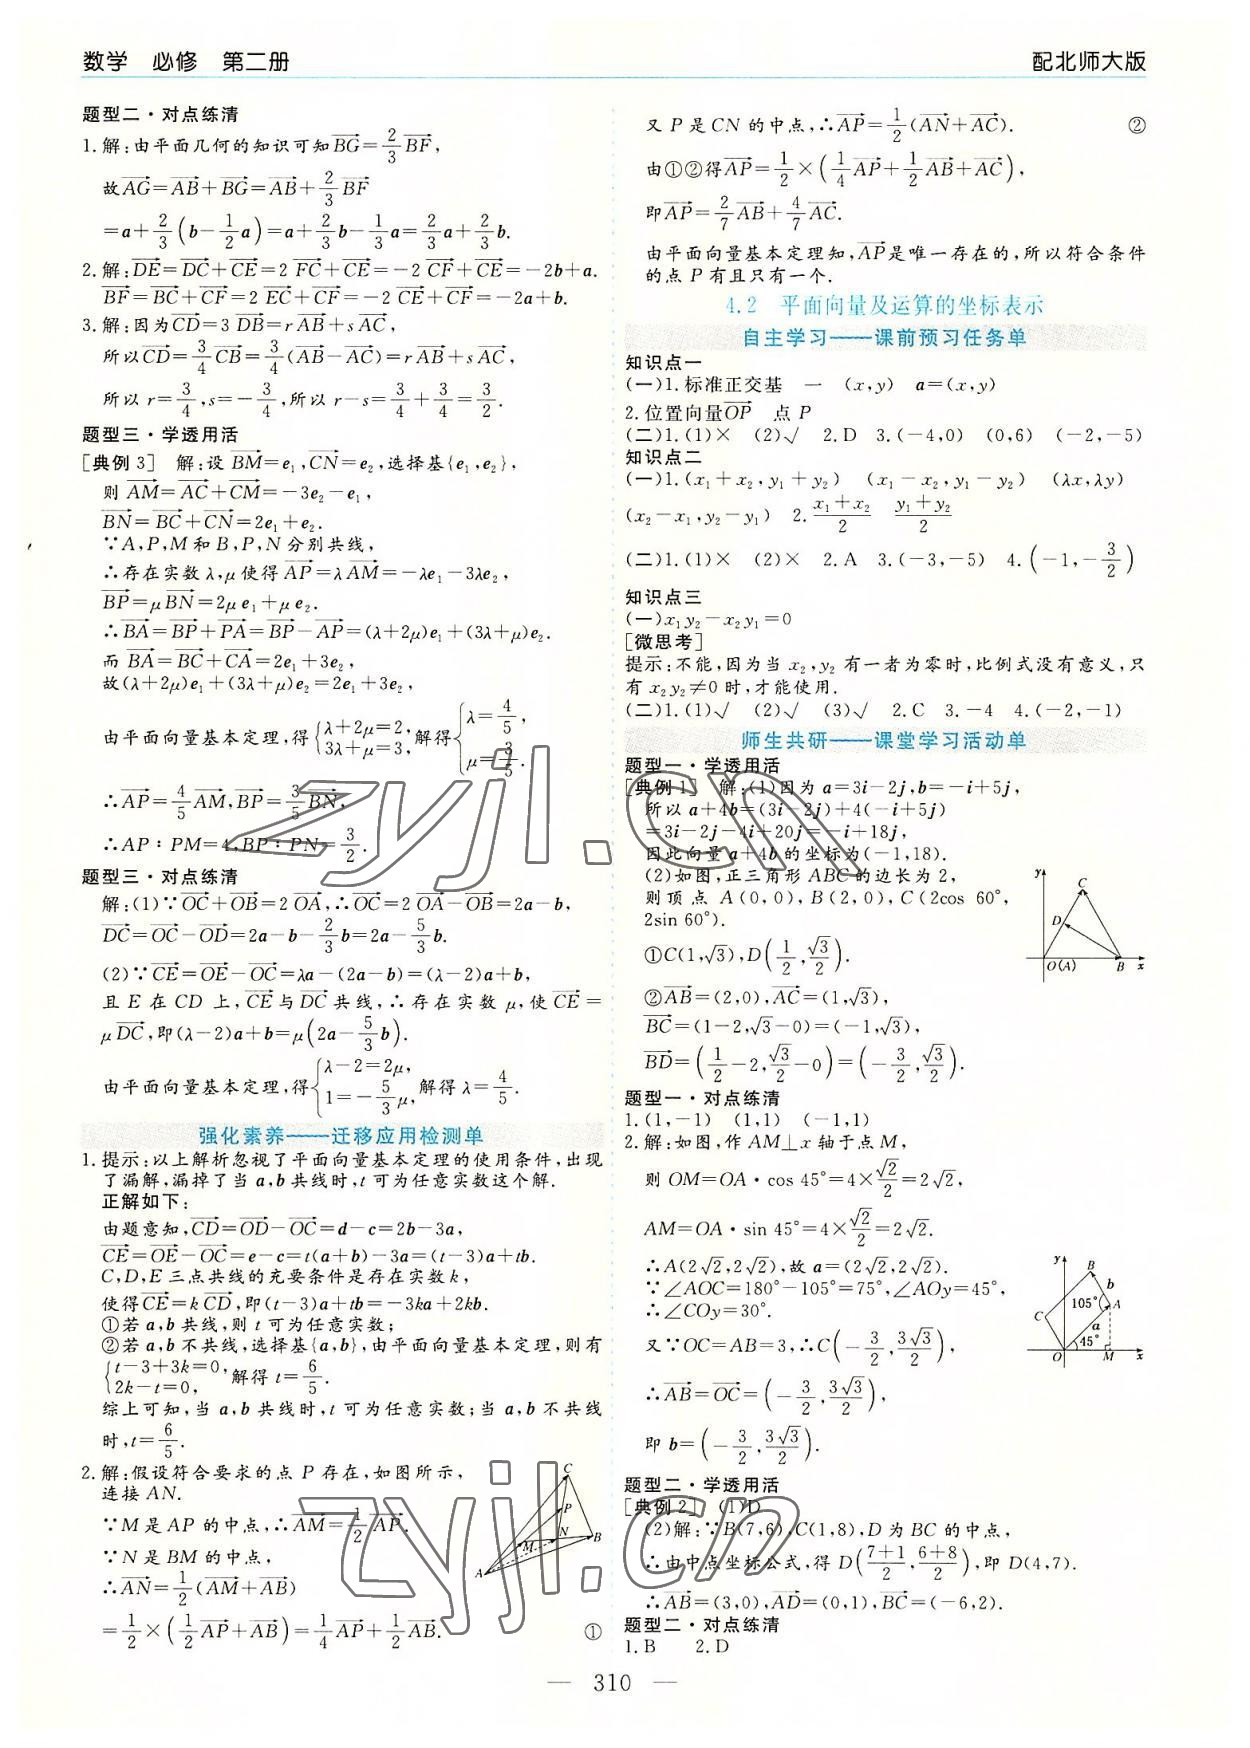 数学 必修 第二册
配北师大版
题型二·对点练清
1.解:由平面几何的知识可知$\overrightarrow{BG}=\frac{2}{3}\overrightarrow{BF}$,
故$\overrightarrow{AG}=\overrightarrow{AB}+\overrightarrow{BG}=\overrightarrow{AB}+\frac{2}{3}\overrightarrow{BF}$
$=a+\frac{2}{3}\left(b-\frac{1}{2}a\right)=a+\frac{2}{3}b-\frac{1}{3}a=\frac{2}{3}a+\frac{2}{3}b.$
2.解:$\overrightarrow{DE}=\overrightarrow{DC}+\overrightarrow{CE}=2\overrightarrow{FC}+\overrightarrow{CE}=-2\overrightarrow{CF}+\overrightarrow{CE}=-2b+a.$
$\overrightarrow{BF}=\overrightarrow{BC}+\overrightarrow{CF}=2\overrightarrow{EC}+\overrightarrow{CF}=-2\overrightarrow{CE}+\overrightarrow{CF}=-2a+b.$
3.解:因为$\overrightarrow{CD}=3\overrightarrow{DB}=r\overrightarrow{AB}+s\overrightarrow{AC}$,
所以$\overrightarrow{CD}=\frac{3}{4}\overrightarrow{CB}=\frac{3}{4}(\overrightarrow{AB}-\overrightarrow{AC})=r\overrightarrow{AB}+s\overrightarrow{AC}$,
所以 $r=\frac{3}{4},s=-\frac{3}{4}$,所以 $r-s=\frac{3}{4}+\frac{3}{4}=\frac{3}{2}.$
题型三·学透用活
[典例3] 解:设 $\overrightarrow{BM}=e_1,\overrightarrow{CN}=e_2$,选择基$\{e_1,e_2\}$,
则 $\overrightarrow{AM}=\overrightarrow{AC}+\overrightarrow{CM}=-3e_2-e_1$,
$\overrightarrow{BN}=\overrightarrow{BC}+\overrightarrow{CN}=2e_1+e_2.$
∵A,P,M 和 B,P,N 分别共线,
∴存在实数 λ,μ 使得 $\overrightarrow{AP}=λ\overrightarrow{AM}=-λe_1-3λe_2$,
$\overrightarrow{BP}=μ\overrightarrow{BN}=2μe_1+μe_2.$
∴$\overrightarrow{BA}=\overrightarrow{BP}+\overrightarrow{PA}=\overrightarrow{BP}-\overrightarrow{AP}=(λ+2μ)e_1+(3λ+μ)e_2.$
而 $\overrightarrow{BA}=\overrightarrow{BC}+\overrightarrow{CA}=2e_1+3e_2$,
故$(λ+2μ)e_1+(3λ+μ)e_2=2e_1+3e_2$,
由平面向量基本定理,得$\begin{cases}λ+2μ=2,\\3λ+μ=3,\end{cases}$解得$\begin{cases}λ=\frac{4}{5},\\μ=\frac{3}{5}.\end{cases}$
∴$\overrightarrow{AP}=\frac{4}{5}\overrightarrow{AM},\overrightarrow{BP}=\frac{3}{5}\overrightarrow{BN}$,
∴AP∶PM=4,BP∶PN=$\frac{3}{2}$.
题型三·对点练清
解:(1)∵$\overrightarrow{OC}+\overrightarrow{OB}=2\overrightarrow{OA}$,∴$\overrightarrow{OC}=2\overrightarrow{OA}-\overrightarrow{OB}=2a-b$,
$\overrightarrow{DC}=\overrightarrow{OC}-\overrightarrow{OD}=2a-b-\frac{2}{3}b=2a-\frac{5}{3}b.$
(2)∵$\overrightarrow{CE}=\overrightarrow{OE}-\overrightarrow{OC}=λa-(2a-b)=(λ-2)a+b$,
且 E 在 CD 上,$\overrightarrow{CE}$与$\overrightarrow{DC}$共线,∴存在实数 μ,使 $\overrightarrow{CE}=$
$μ\overrightarrow{DC}$,即$(λ-2)a+b=μ\left(2a-\frac{5}{3}b\right).$
由平面向量基本定理,得$\begin{cases}λ-2=2μ,\\1=-\frac{5}{3}μ,\end{cases}$解得 $λ=\frac{4}{5}.$
强化素养——迁移应用检测单
1.提示:以上解析忽视了平面向量基本定理的使用条件,出现
了漏解,漏掉了当 a,b 共线时,t 可为任意实数这个解.
正解如下:
由题意知,$\overrightarrow{CD}=\overrightarrow{OD}-\overrightarrow{OC}=d-c=2b-3a$,
$\overrightarrow{CE}=\overrightarrow{OE}-\overrightarrow{OC}=e-c=t(a+b)-3a=(t-3)a+tb.$
C,D,E 三点共线的充要条件是存在实数 k,
使得$\overrightarrow{CE}=k\overrightarrow{CD}$,即$(t-3)a+tb=-3ka+2kb.$
①若 a,b 共线,则 t 可为任意实数;
②若 a,b 不共线,选择基{a,b},由平面向量基本定理,则有
$\begin{cases}t-3+3k=0,\\2k-t=0,\end{cases}$解得 $t=\frac{6}{5}.$
综上可知,当 a,b 共线时,t 可为任意实数;当 a,b 不共线
时,$t=\frac{6}{5}.$
2.解:假设符合要求的点 P 存在,如图所示,
连接 AN.
∵M 是 AP 的中点,∴$\overrightarrow{AM}=\frac{1}{2}\overrightarrow{AP}.$
∵N 是 BM 的中点,
∴$\overrightarrow{AN}=\frac{1}{2}(\overrightarrow{AM}+\overrightarrow{AB})$
$=\frac{1}{2}×\left(\frac{1}{2}\overrightarrow{AP}+\overrightarrow{AB}\right)=\frac{1}{4}\overrightarrow{AP}+\frac{1}{2}\overrightarrow{AB}.$ ①
C
P
N
M
B
A
又 P 是 CN 的中点,∴$\overrightarrow{AP}=\frac{1}{2}(\overrightarrow{AN}+\overrightarrow{AC}).$ ②
由①②得$\overrightarrow{AP}=\frac{1}{2}×\left(\frac{1}{4}\overrightarrow{AP}+\frac{1}{2}\overrightarrow{AB}+\overrightarrow{AC}\right)$,
即$\overrightarrow{AP}=\frac{2}{7}\overrightarrow{AB}+\frac{4}{7}\overrightarrow{AC}.$
由平面向量基本定理知,$\overrightarrow{AP}$是唯一存在的,所以符合条件
的点 P 有且只有一个.
4.2 平面向量及运算的坐标表示
自主学习——课前预习任务单
知识点一
(一)1.标准正交基 一 (x,y) a=(x,y)
2.位置向量$\overrightarrow{OP}$ 点 P
(二)1.(1)× (2)√ 2.D 3.(-4,0) (0,6) (-2,-5)
知识点二
(一)1.$(x_1+x_2,y_1+y_2)$ $(x_1-x_2,y_1-y_2)$ (λx,λy)
$(x_2-x_1,y_2-y_1)$ 2.$\frac{x_1+x_2}{2}$ $\frac{y_1+y_2}{2}$
(二)1.(1)× (2)× 2.A 3.(-3,-5) 4.$\left(-1,-\frac{3}{2}\right)$
知识点三
(一)$x_1y_2-x_2y_1=0$
[微思考]
提示:不能,因为当 $x_2,y_2$ 有一者为零时,比例式没有意义,只
有 $x_2y_2≠0$ 时,才能使用.
(二)1.(1)√ (2)√ (3)√ 2.C 3.-4 4.(-2,-1)
师生共研——课堂学习活动单
题型一·学透用活
[典例1] 解:(1)因为 a=3i-2j,b=-i+5j,
所以 a+4b=(3i-2j)+4(-i+5j)
=3i-2j-4i+20j=-i+18j,
因此向量 a+4b 的坐标为(-1,18).
(2)如图,正三角形 ABC 的边长为 2,
则顶点 A(0,0),B(2,0),C(2cos 60°,
2sin 60°).
①$C(1,\sqrt{3}),D\left(\frac{1}{2},\frac{\sqrt{3}}{2}\right).$
②$\overrightarrow{AB}=(2,0),\overrightarrow{AC}=(1,\sqrt{3})$,
$\overrightarrow{BC}=(1-2,\sqrt{3}-0)=(-1,\sqrt{3})$,
$\overrightarrow{BD}=\left(\frac{1}{2}-2,\frac{\sqrt{3}}{2}-0\right)=\left(-\frac{3}{2},\frac{\sqrt{3}}{2}\right).$
y
C
D
O(A)
B
x
题型一·对点练清
1.(1,-1) (1,1) (-1,1)
2.解:如图,作 AM⊥x 轴于点 M,
则 OM=OA·cos 45°=4×$\frac{\sqrt{2}}{2}$=2$\sqrt{2}$,
AM=OA·sin 45°=4×$\frac{\sqrt{2}}{2}$=2$\sqrt{2}$.
∴A(2$\sqrt{2}$,2$\sqrt{2}$),故 a=(2$\sqrt{2}$,2$\sqrt{2}$).
∵∠AOC=180°-105°=75°,∠AOy=45°,
∴∠COy=30°.
又∵OC=AB=3,∴$C\left(-\frac{3}{2},\frac{3\sqrt{3}}{2}\right)$,
∴$\overrightarrow{AB}=\overrightarrow{OC}=\left(-\frac{3}{2},\frac{3\sqrt{3}}{2}\right)$,
即 $b=\left(-\frac{3}{2},\frac{3\sqrt{3}}{2}\right).$
y
B
b
105°
A
C
a
45°
O
M
x
题型二·学透用活
[典例2] (1)D
(2)解:∵B(7,6),C(1,8),D 为 BC 的中点,
∴由中点坐标公式,得 $D\left(\frac{7+1}{2},\frac{6+8}{2}\right)$,即 D(4,7).
∴$\overrightarrow{AB}=(3,0),\overrightarrow{AD}=(0,1),\overrightarrow{BC}=(-6,2).$
题型二·对点练清
1.B 2.D
310
zyjl.cn
zyjl.cn